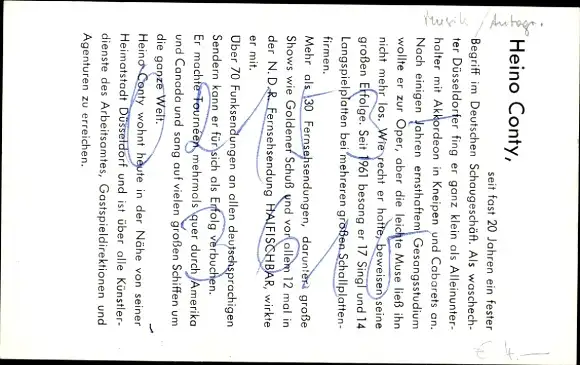 Musik / Autogr.
Heino Conty,
seit fast 20 Jahren ein fester
Begriff im Deutschen Schaugeschäft. Als waschech-
ter Düsseldorfer fing er ganz klein als Alleinunter-
halter mit Akkordeon in Kneipen und Cabarets an.
Nach einigen Jahren ernsthaftem Gesangsstudium
wollte er zur Oper, aber die leichte Muse ließ ihn
nicht mehr los. Wie recht er hatte, beweisen seine
großen Erfolge. Seit 1961 besang er 17 Singl und 14
Langspielplatten bei mehreren großen Schallplatten-
firmen.
Mehr als 130 Fernsehsendungen, darunter große
Shows wie Goldener Schuß und vor allem 12 mal in
der N.D.R. Fernsehsendung HAIFISCHBAR, wirkte
er mit.
Über 70 Funksendungen an allen deutschsprachigen
Sendern kann er für sich als Erfolg verbuchen.
Er machte Tournéen mehrmals quer durch Amerika
und Canada und sang auf vielen großen Schiffen um
die ganze Welt.
Heino Conty wohnt heute in der Nähe von seiner
Heimatstadt Düsseldorf und ist über alle Künstler-
dienste des Arbeitsamtes, Gastspieldirektionen und
Agenturen zu erreichen.